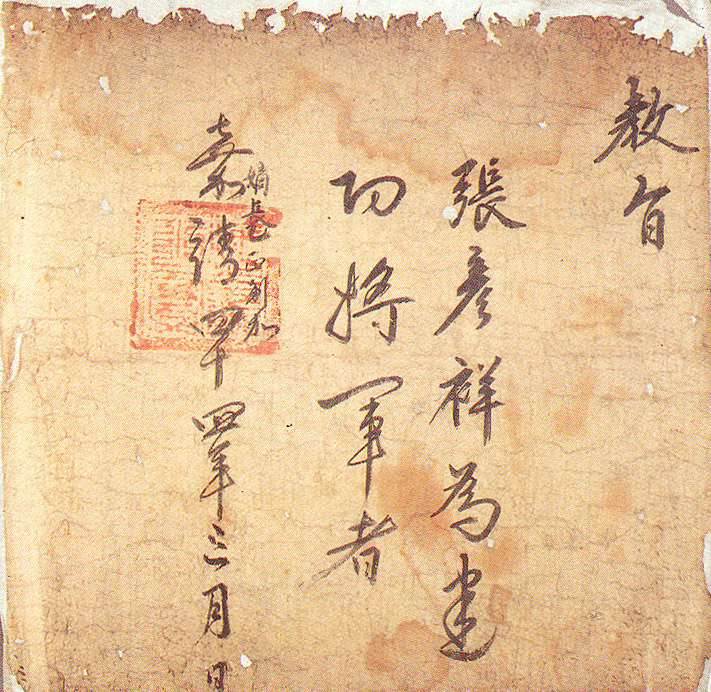 教旨
張彦祥為建
功將軍者
嘉靖四十四年三月日